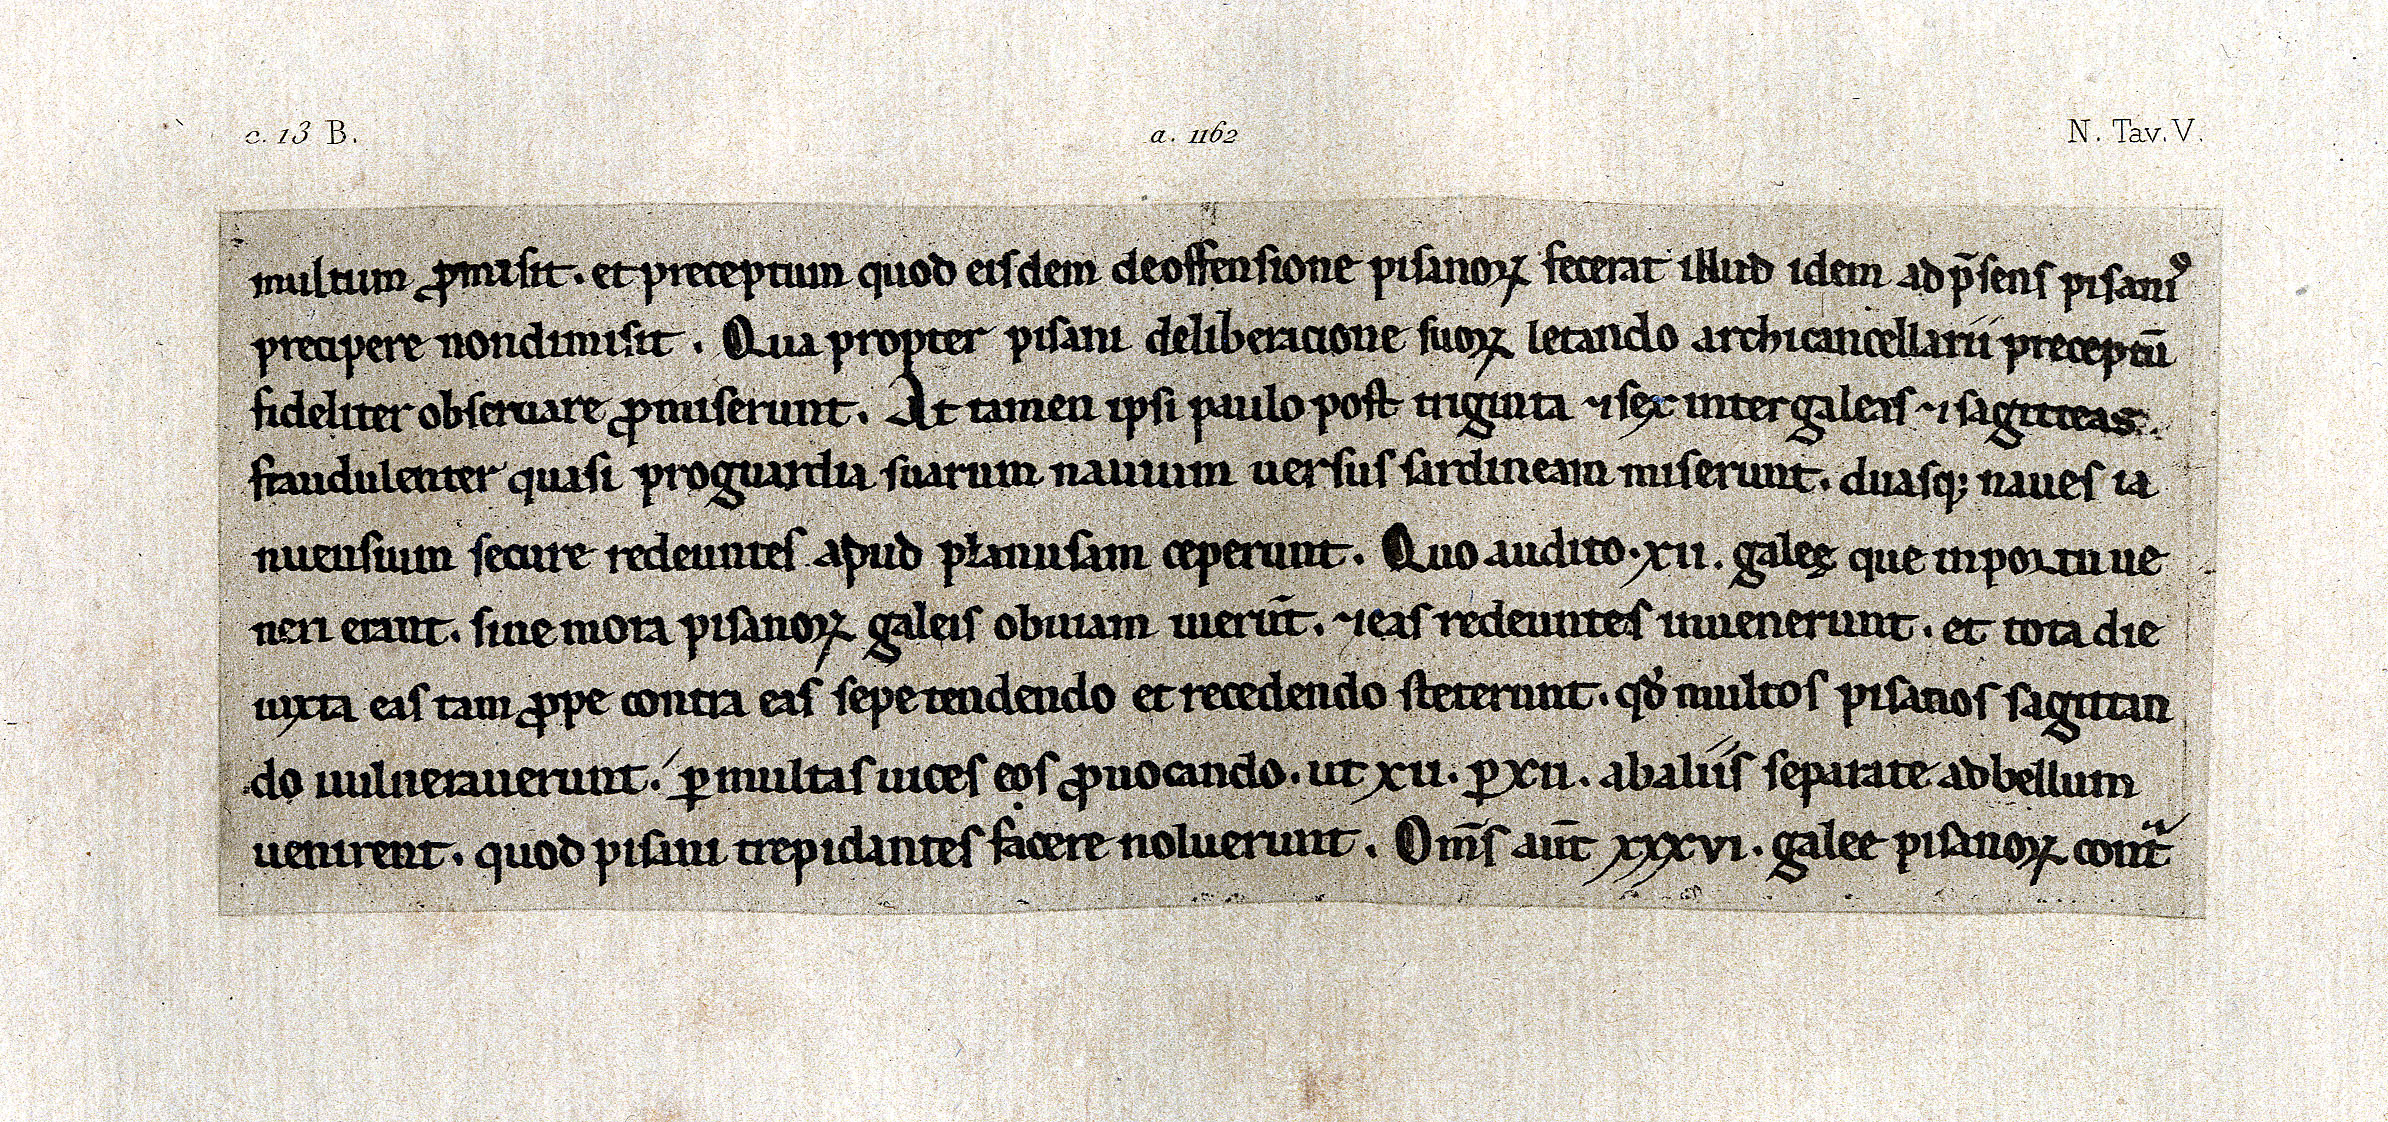 c. 13 B.
a. 1162
N. Tav. V.
multum ꝓmisit. et preceptum quod eisdem deoffensione pisanoꝝ fecerat illud idem ad p̄sens pisaniꝰ
precipere nondimisit. Qua propter pisani deliberacione suoꝝ letando archicancellarii preceptū
fideliter obseruare ꝓmiserunt. At tamen ipsi paulo post triginta ⁊ sex inter galeas ⁊ sagitteas.
fraudulenter quasi proguardia suarum nauium uersus sardineam miserunt. duasqꝫ naues ia
nuensium secure redeuntes apud planusam ceperunt. Quo audito. xii. galeę que inportu ue
neri erant. sine mora pisanoꝝ galeis obuiam iuerūt. ⁊ eas redeuntes inuenerunt. et tota die
iuxta eas tam ꝓpe contra eas sepe tendendo et recedendo steterunt. qđ multos pisanos sagittan
do uulnerauerunt. ꝑ multas uices eos ꝓuocando. ut xii. ꝑ xii. abaliis separate ad bellum
uenirent. quod pisani trepidantes facere noluerunt. Om̄s aut̄ xxxvi. galee pisanoꝝ cont̃